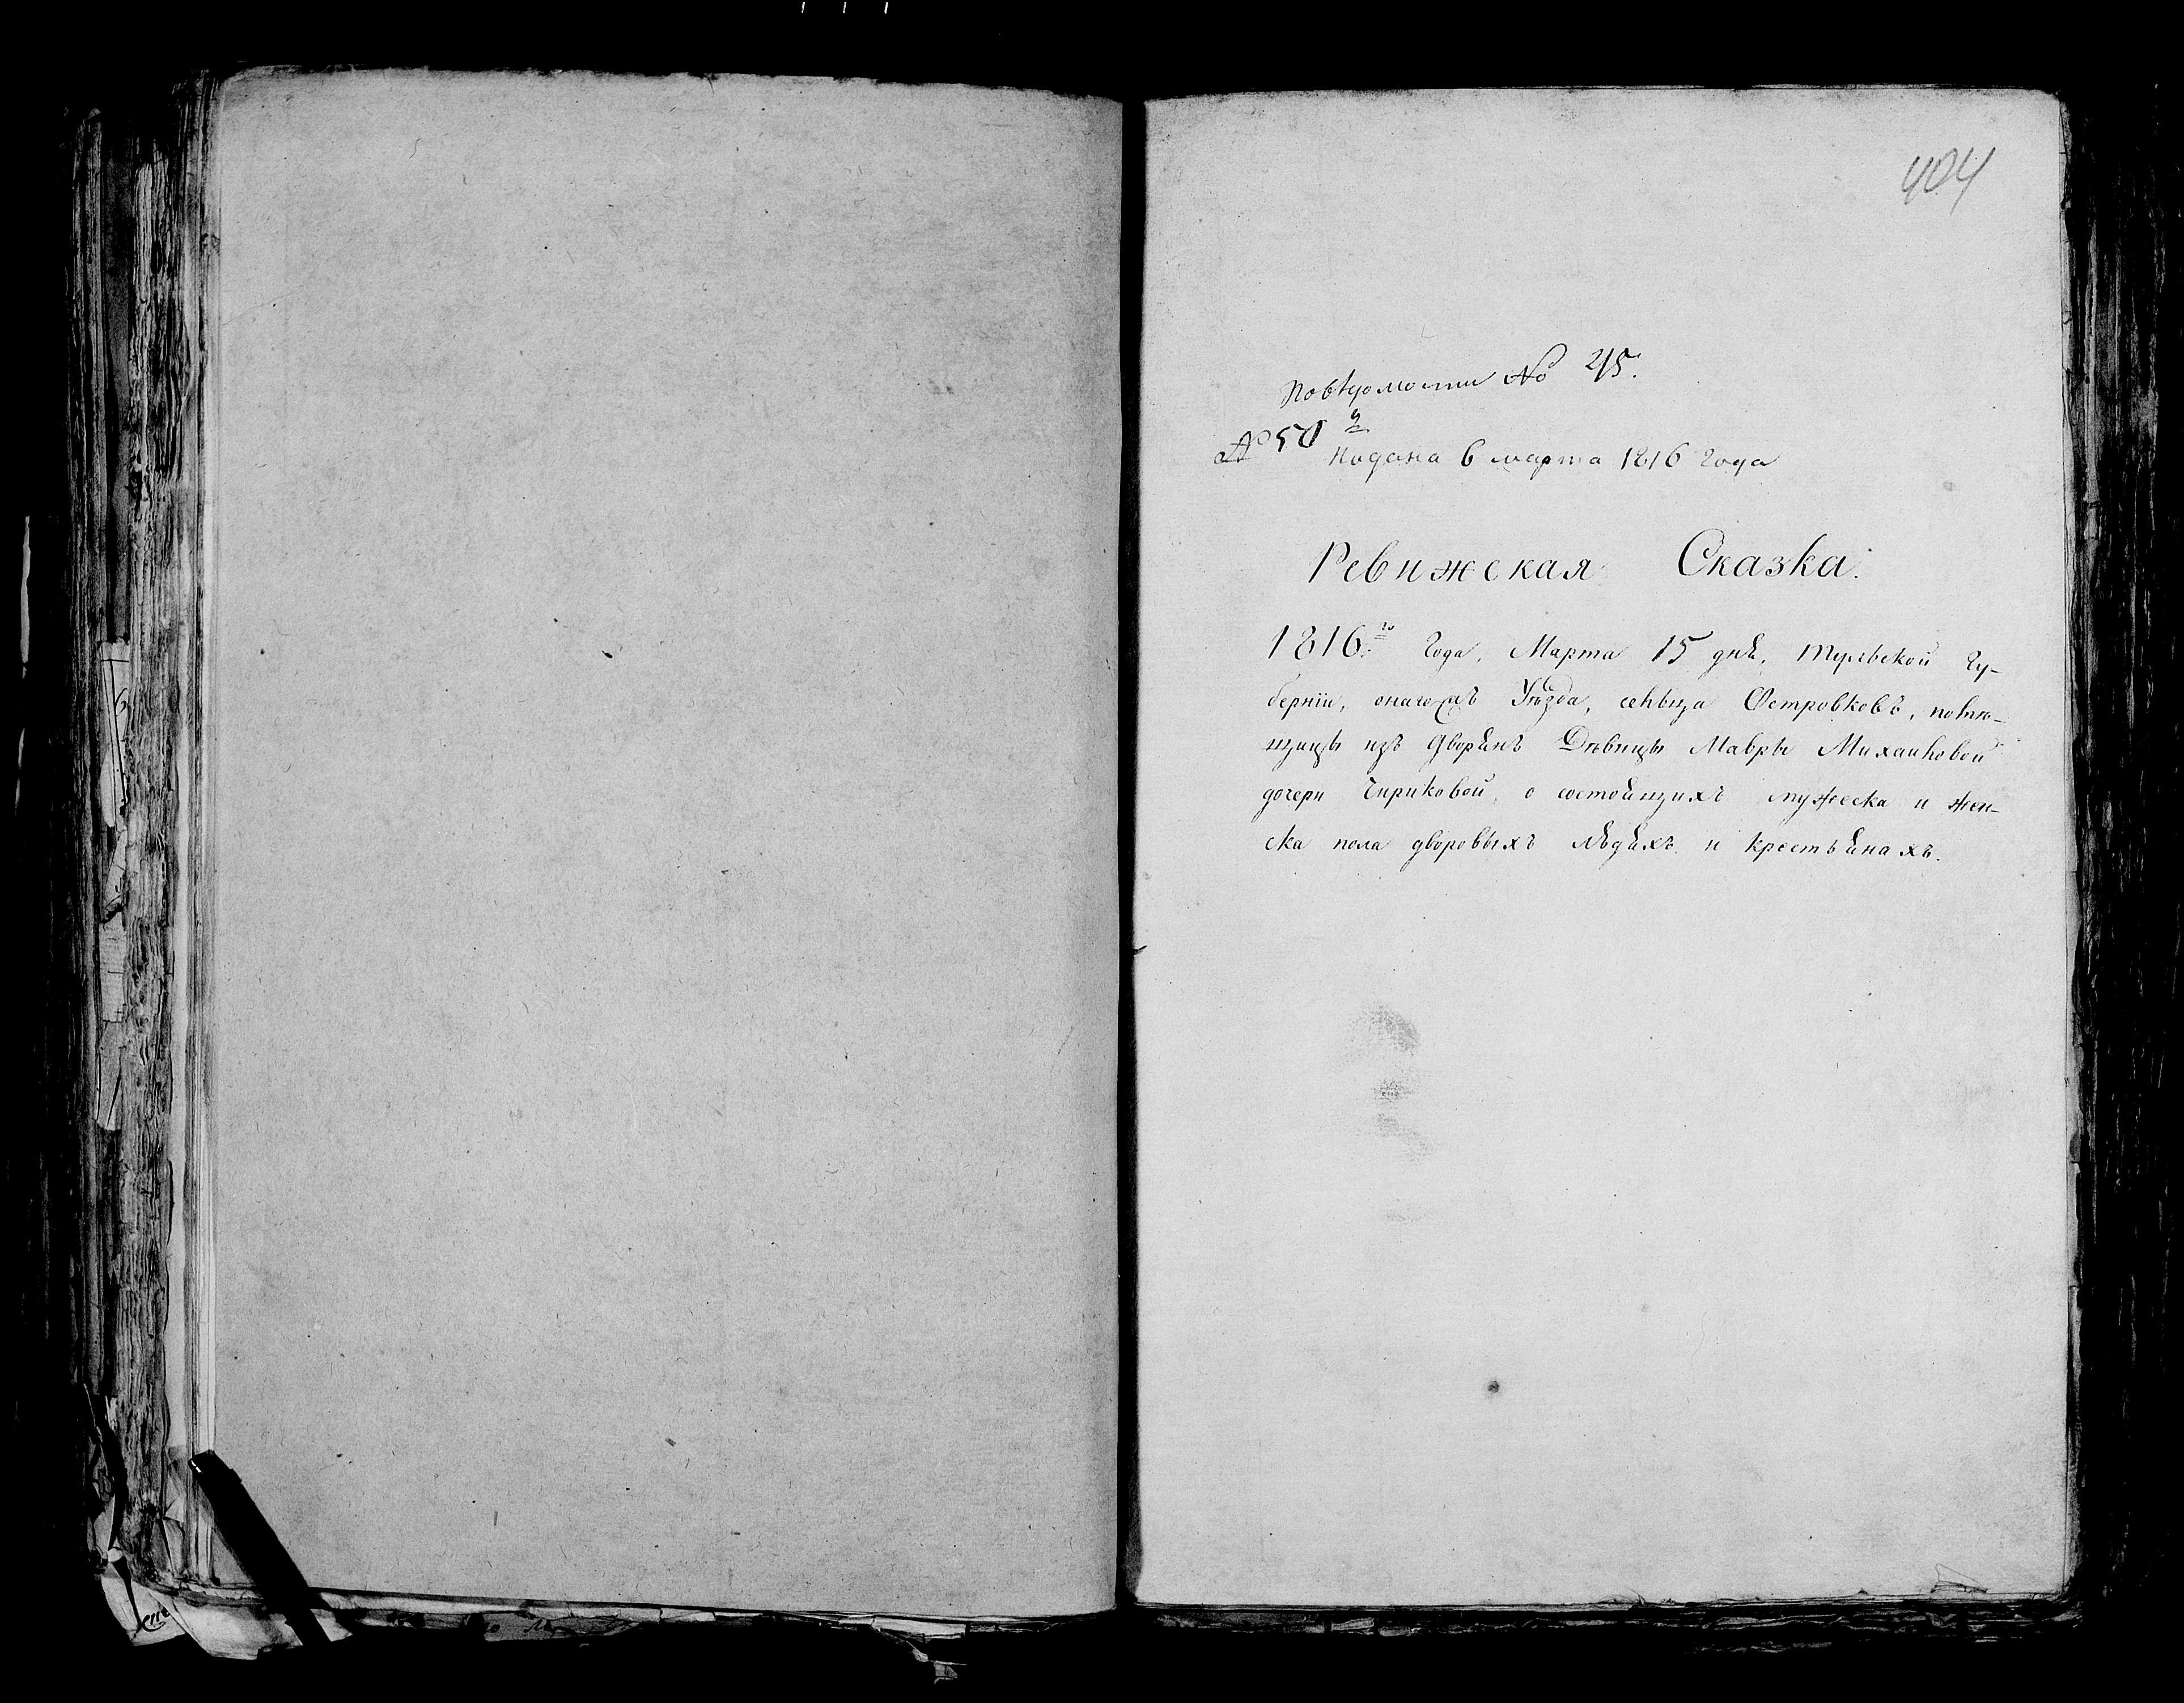 404
По вѣдомости № 215.
№ 50й
Подана 6 марта 1816 года
Ревижская Сказка.
1816го Года, Марта 15 дня, Тульской Гу-
берніи, онаго Уѣзда, сельца Островковъ, помѣ-
щицы изъ Дворянъ Дѣвицы Мавры Михайловой
дочери Чириковой, о состоящихъ мужеска и жен-
ска пола дворовыхъ людяхъ и крестьянахъ.